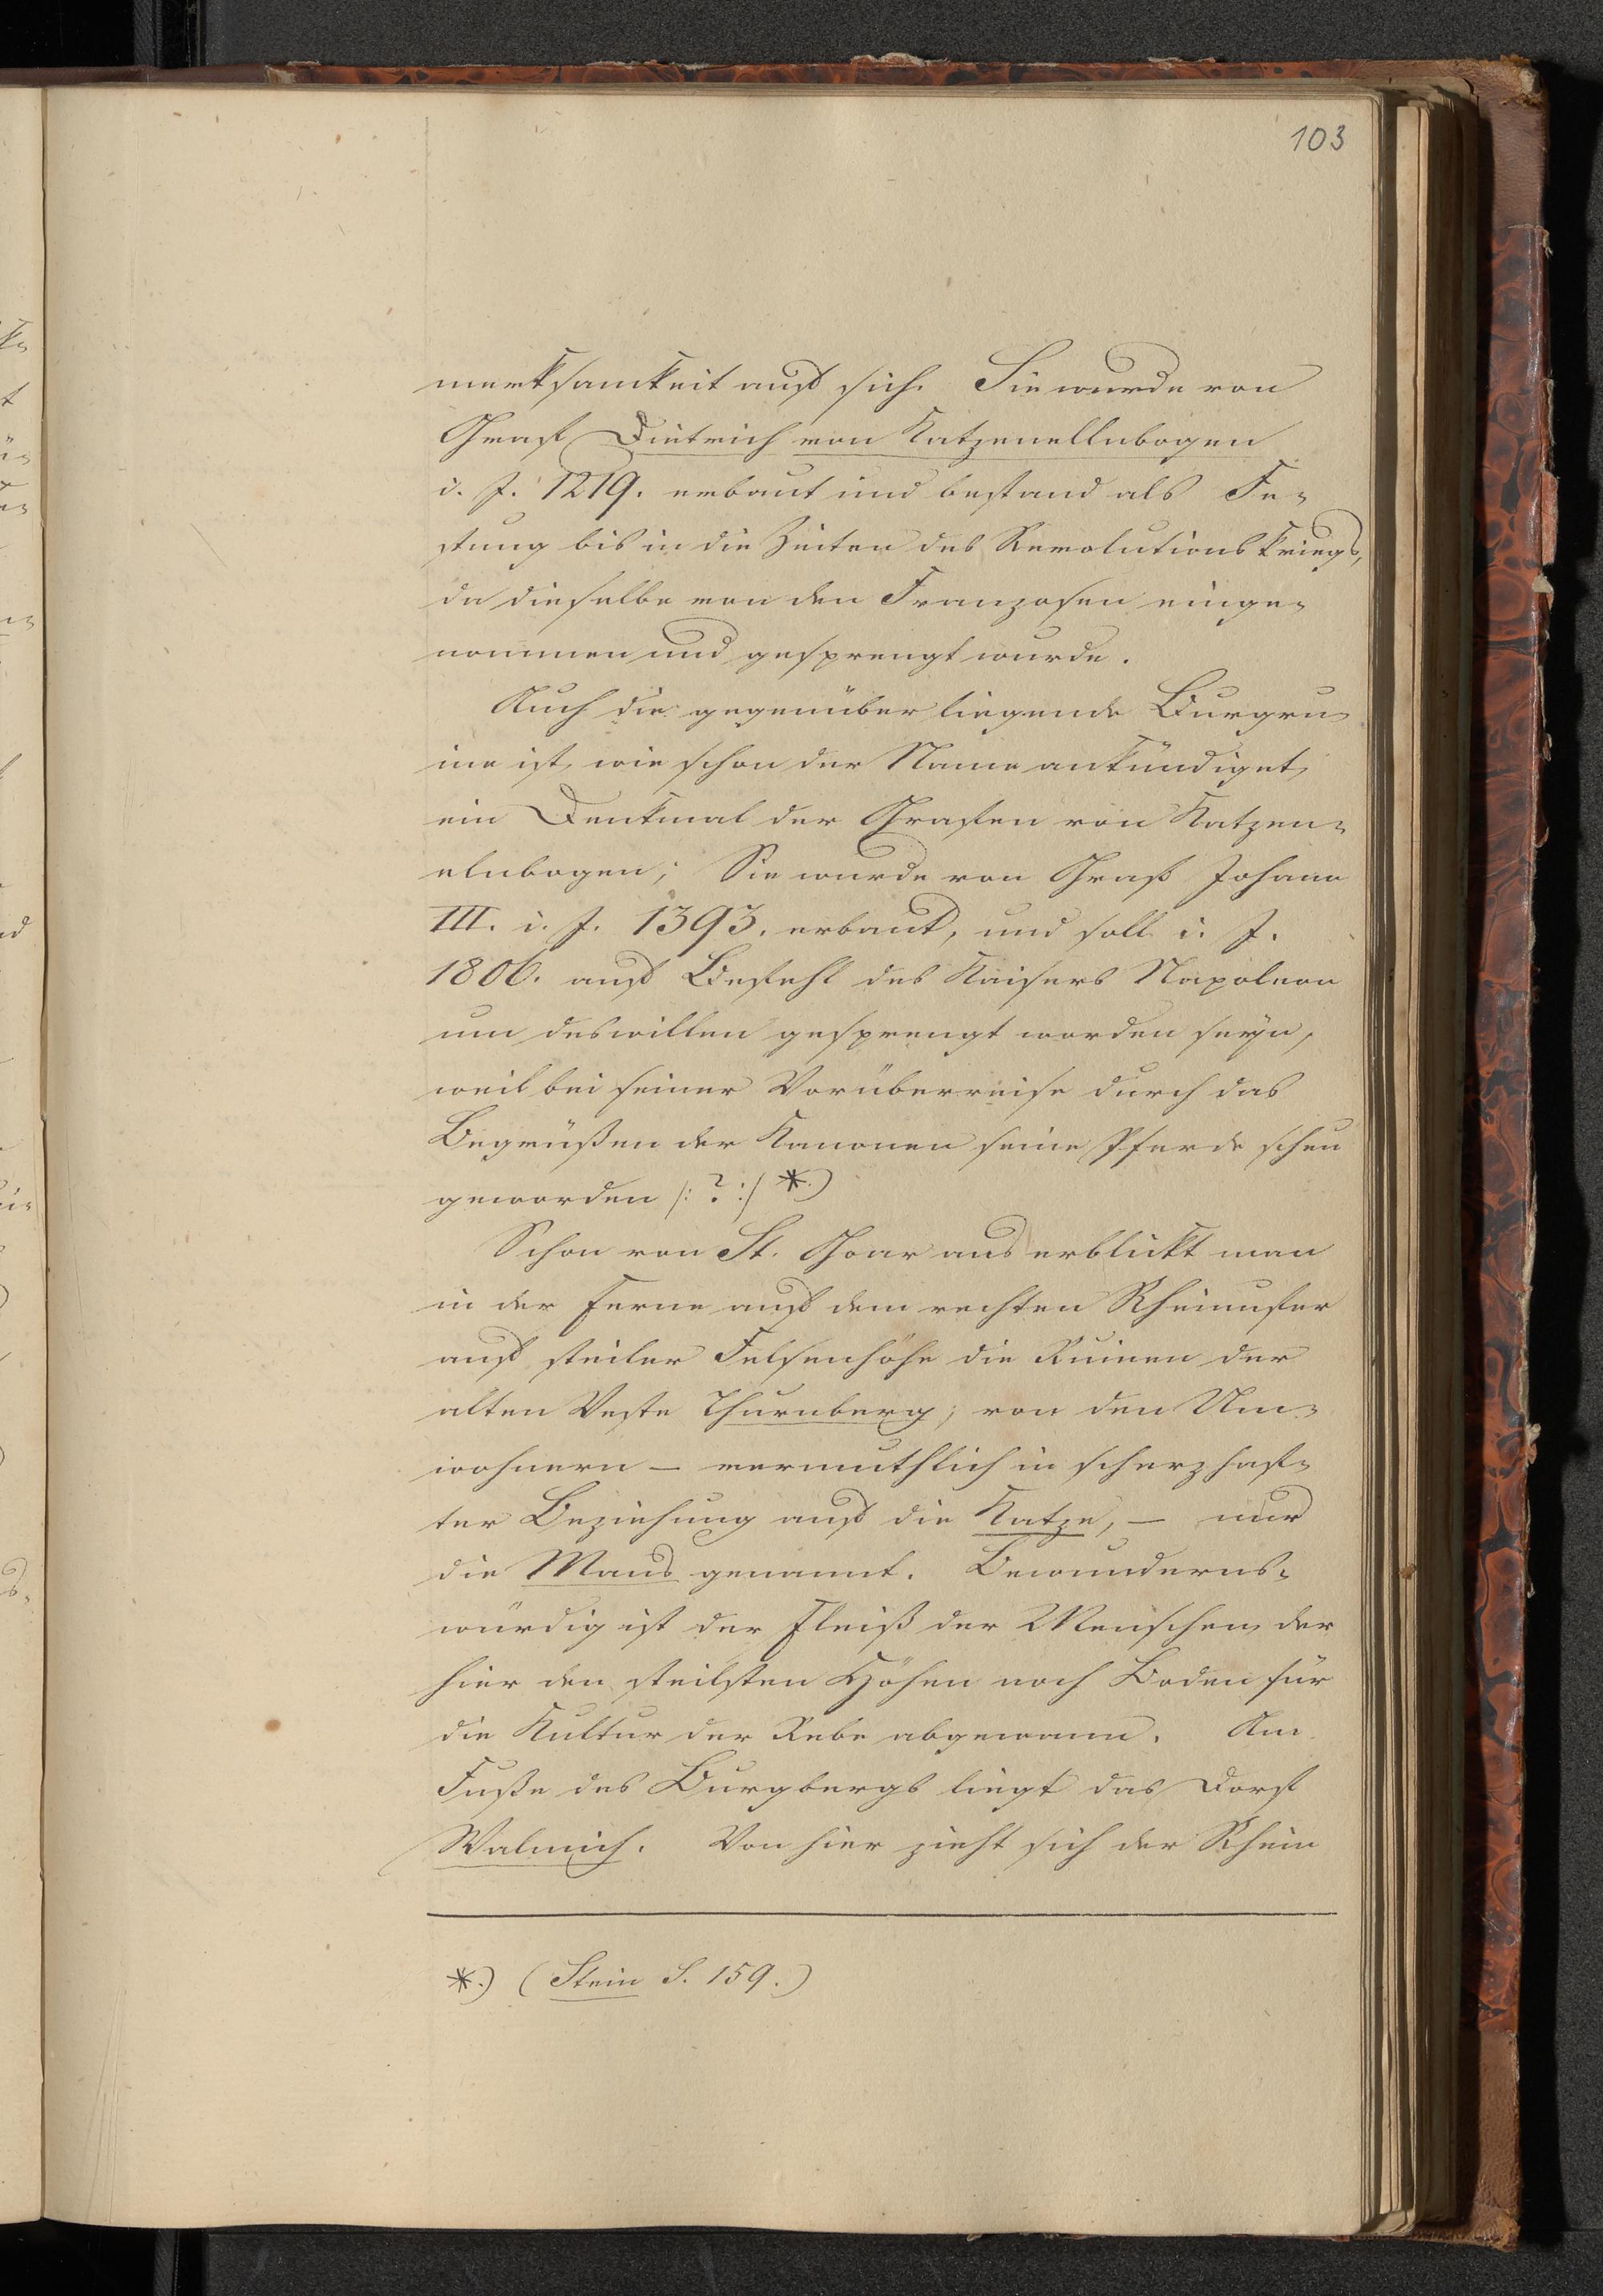 103
merksamkeit auf sich. Sie wurde von
Graf Dietrich von Katzenellnbogen
i. J. 1219. erbaut und bestand als Fe-
stung bis in die Zeiten des Revolutionskriegs,
da dieselbe von den Franzosen einge-
nommen und gesprengt wurde.
Auch die gegenüber liegende Burgru-
ine ist, wie schon der Name ankündiget,
ein Denkmal der Grafen von Katzen-
elnbogen; Sie wurde von Graf Johann
III. i. J. 1393. erbaut, und soll i. J.
1806. auf Befehl des Kaisers Napoleon
um deswillen gesprengt worden seyn,
weil bei seiner Vorüberreise durch das
Begrüßen der Kanonen seine Pferde scheu
geworden /: ? :/ *.)
Schon von St. Goar aus erblickt man
in der Ferne auf dem rechten Rheinufer
auf steiler Felsenhöhe die Ruinen der
alten Veste Thurnberg; von den Um-
wohnern – vermuthlich in scherzhaf-
ter Beziehung auf die Katze, – nur
die Maus genannt. Bewunderns-
würdig ist der Fleiß der Menschen, der
hier den steilsten Höhen noch Boden für
die Kultur der Rebe abgewann. Am
Fuße des Burgbergs liegt das Dorf
Walmich. Von hier zieht sich der Rhein
*.) (Stein S. 159.)